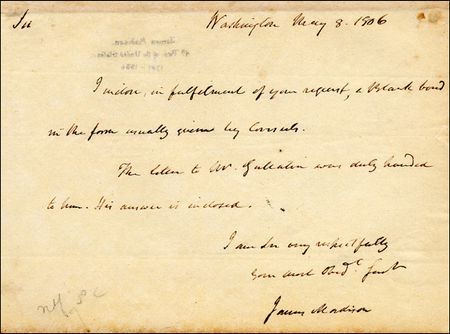 Sir Washington May 8. 1806
I inclose, in fulfilment of your request, a blank bond
in the form usually given by Consuls.
The letter to Mr. Gallatin was duly handed
to him. His answer is inclosed.
I am Sir very respectfully
Your most Obedt Servt
James Madison